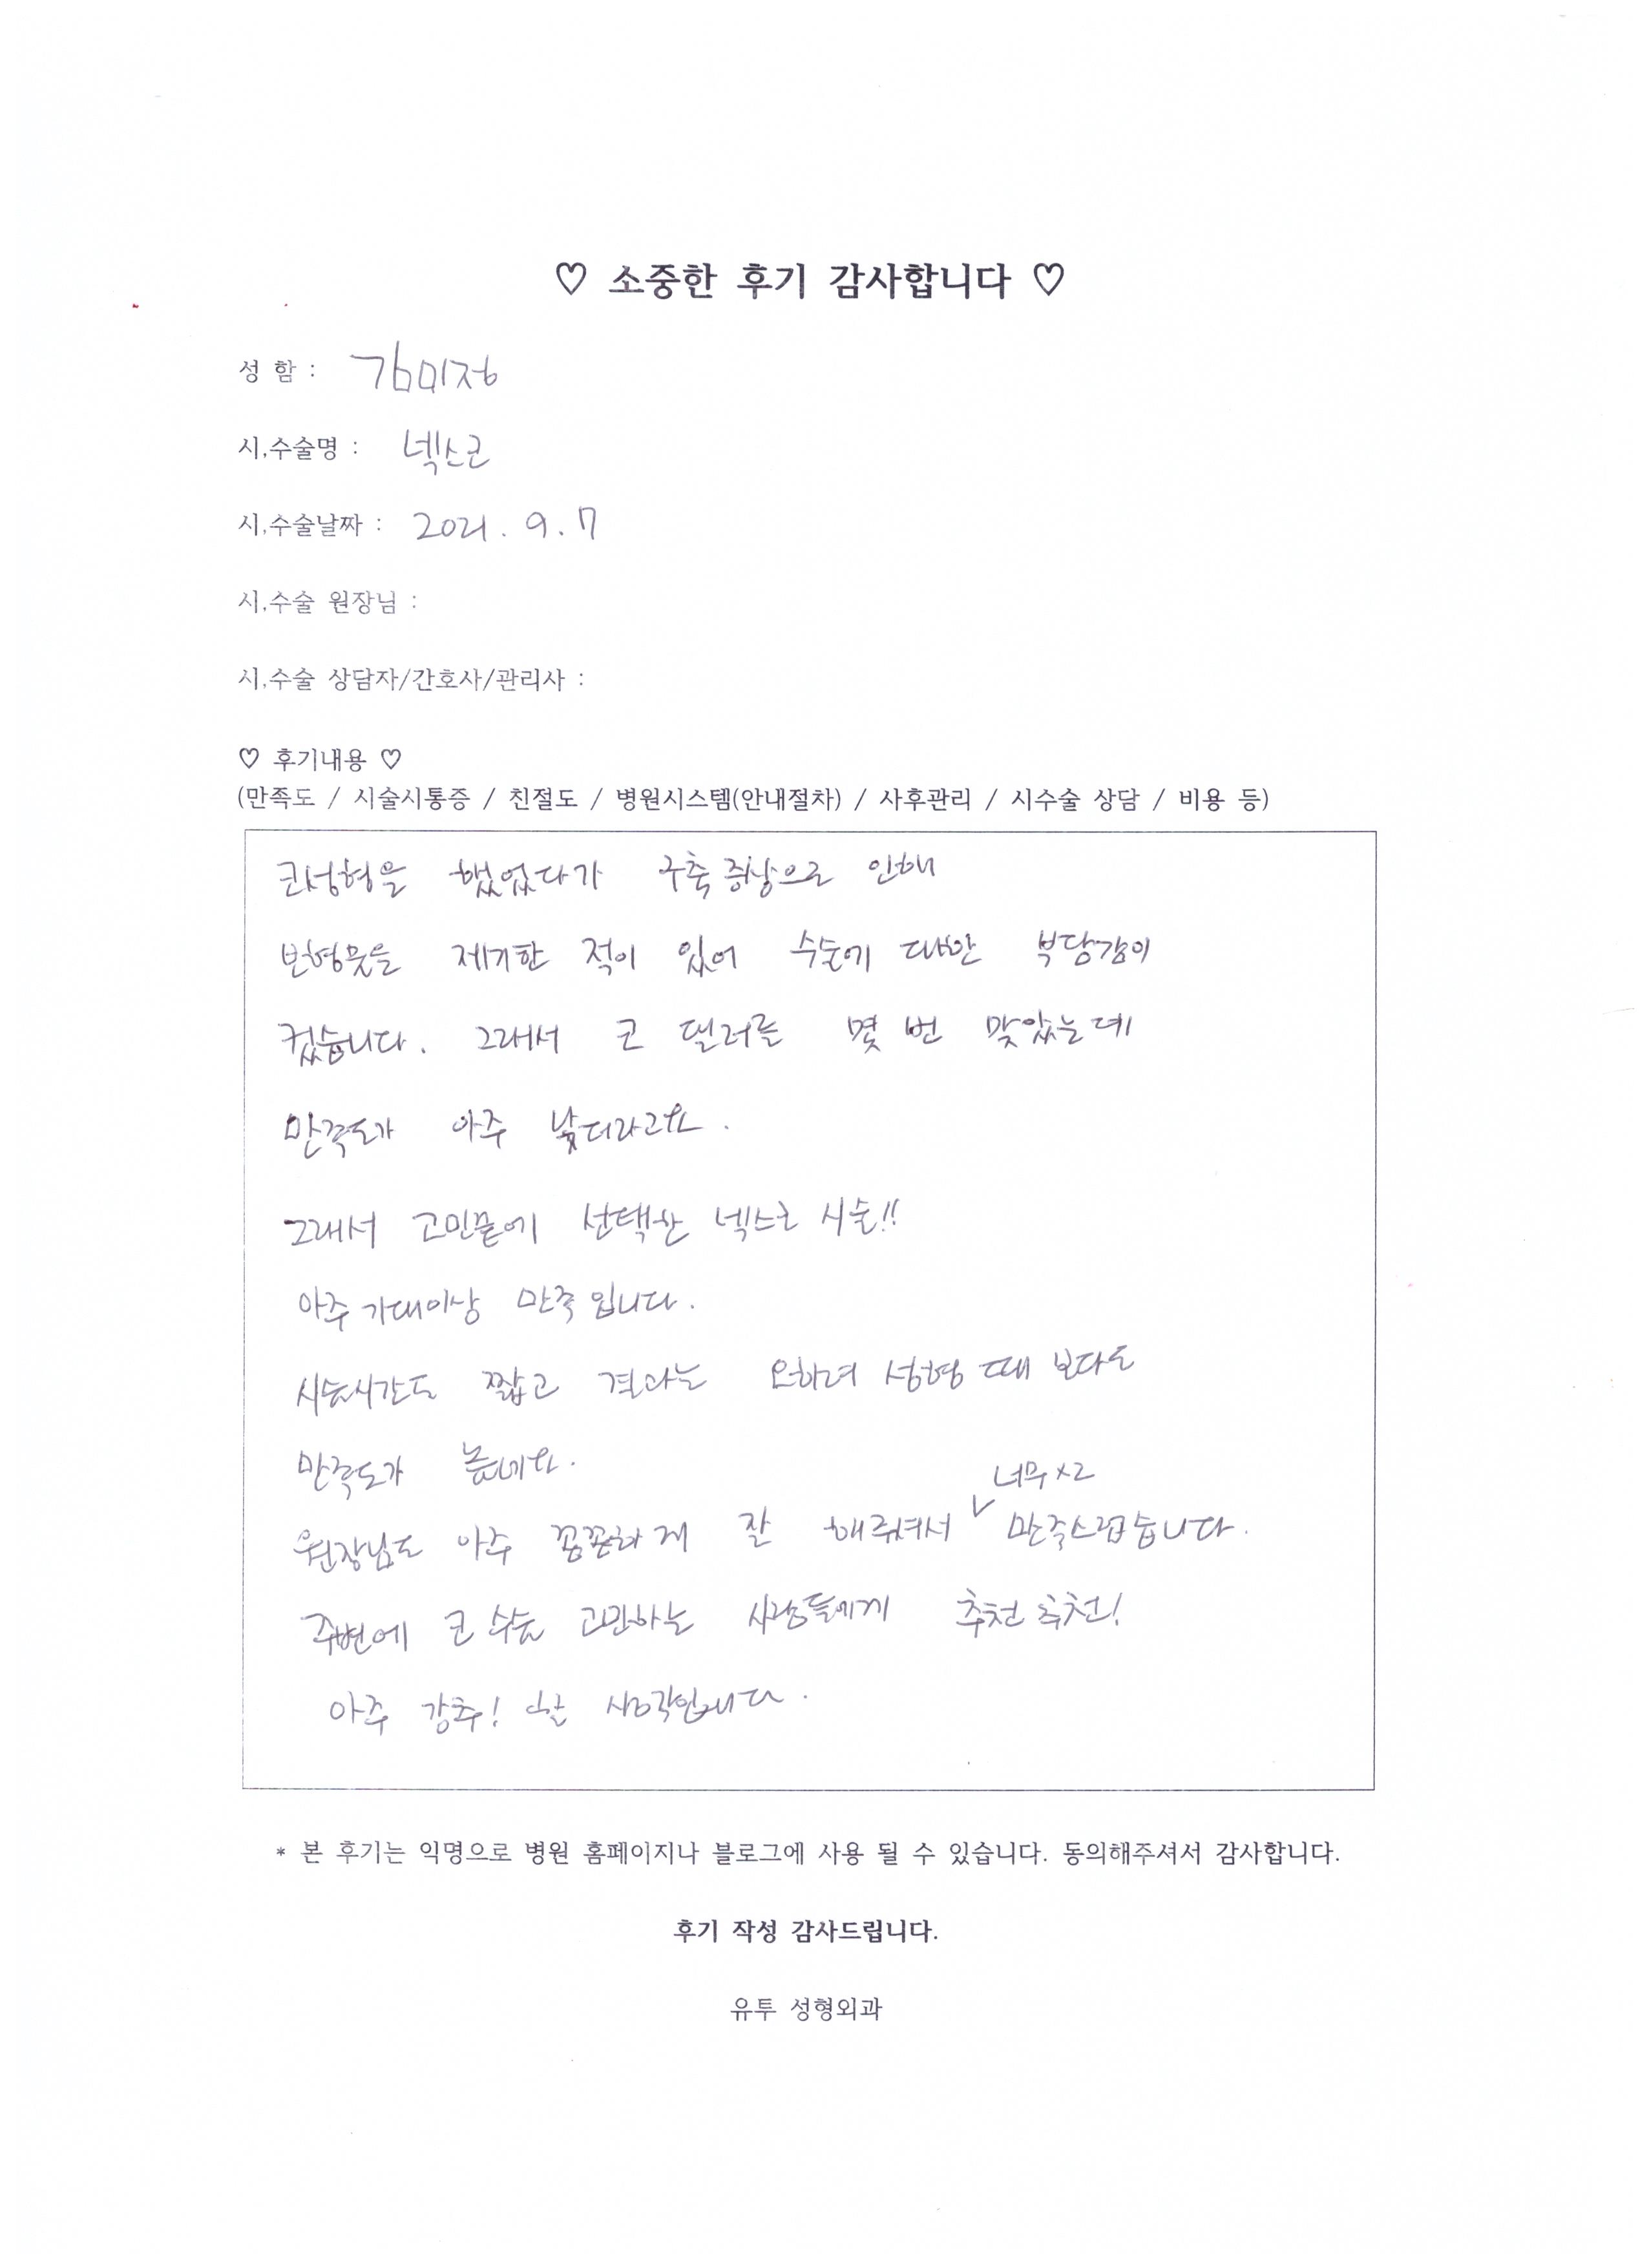 ♡ 소중한 후기 감사합니다 ♡
성 함 : 김미정
시,수술명 : 넥스코
시,수술날짜 : 2021. 9. 7
시,수술 원장님 :
시,수술 상담자/간호사/관리사 :
♡ 후기내용 ♡
(만족도 / 시술시통증 / 친절도 / 병원시스템(안내절차) / 사후관리 / 시수술 상담 / 비용 등)
코성형을 했었다가 구축 증상으로 인해
보형물을 제거한 적이 있어 수술에 대한 부담감이
컸습니다. 그래서 코 필러를 몇 번 맞았는데
만족도가 아주 낮더라고요.
그래서 고민끝에 선택한 넥스코 시술!!
아주 기대이상 만족 입니다.
시술시간도 짧고 결과는 오히려 성형 때 보다도
만족도가 높네요.
너무 x2
원장님도 아주 꼼꼼하게 잘 해주셔서 ✓ 만족스럽습니다.
주변에 코 수술 고민하는 사람들에게 추천 추천!
아주 강추! 할 생각입니다.
* 본 후기는 익명으로 병원 홈페이지나 블로그에 사용 될 수 있습니다. 동의해주셔서 감사합니다.
후기 작성 감사드립니다.
유투 성형외과